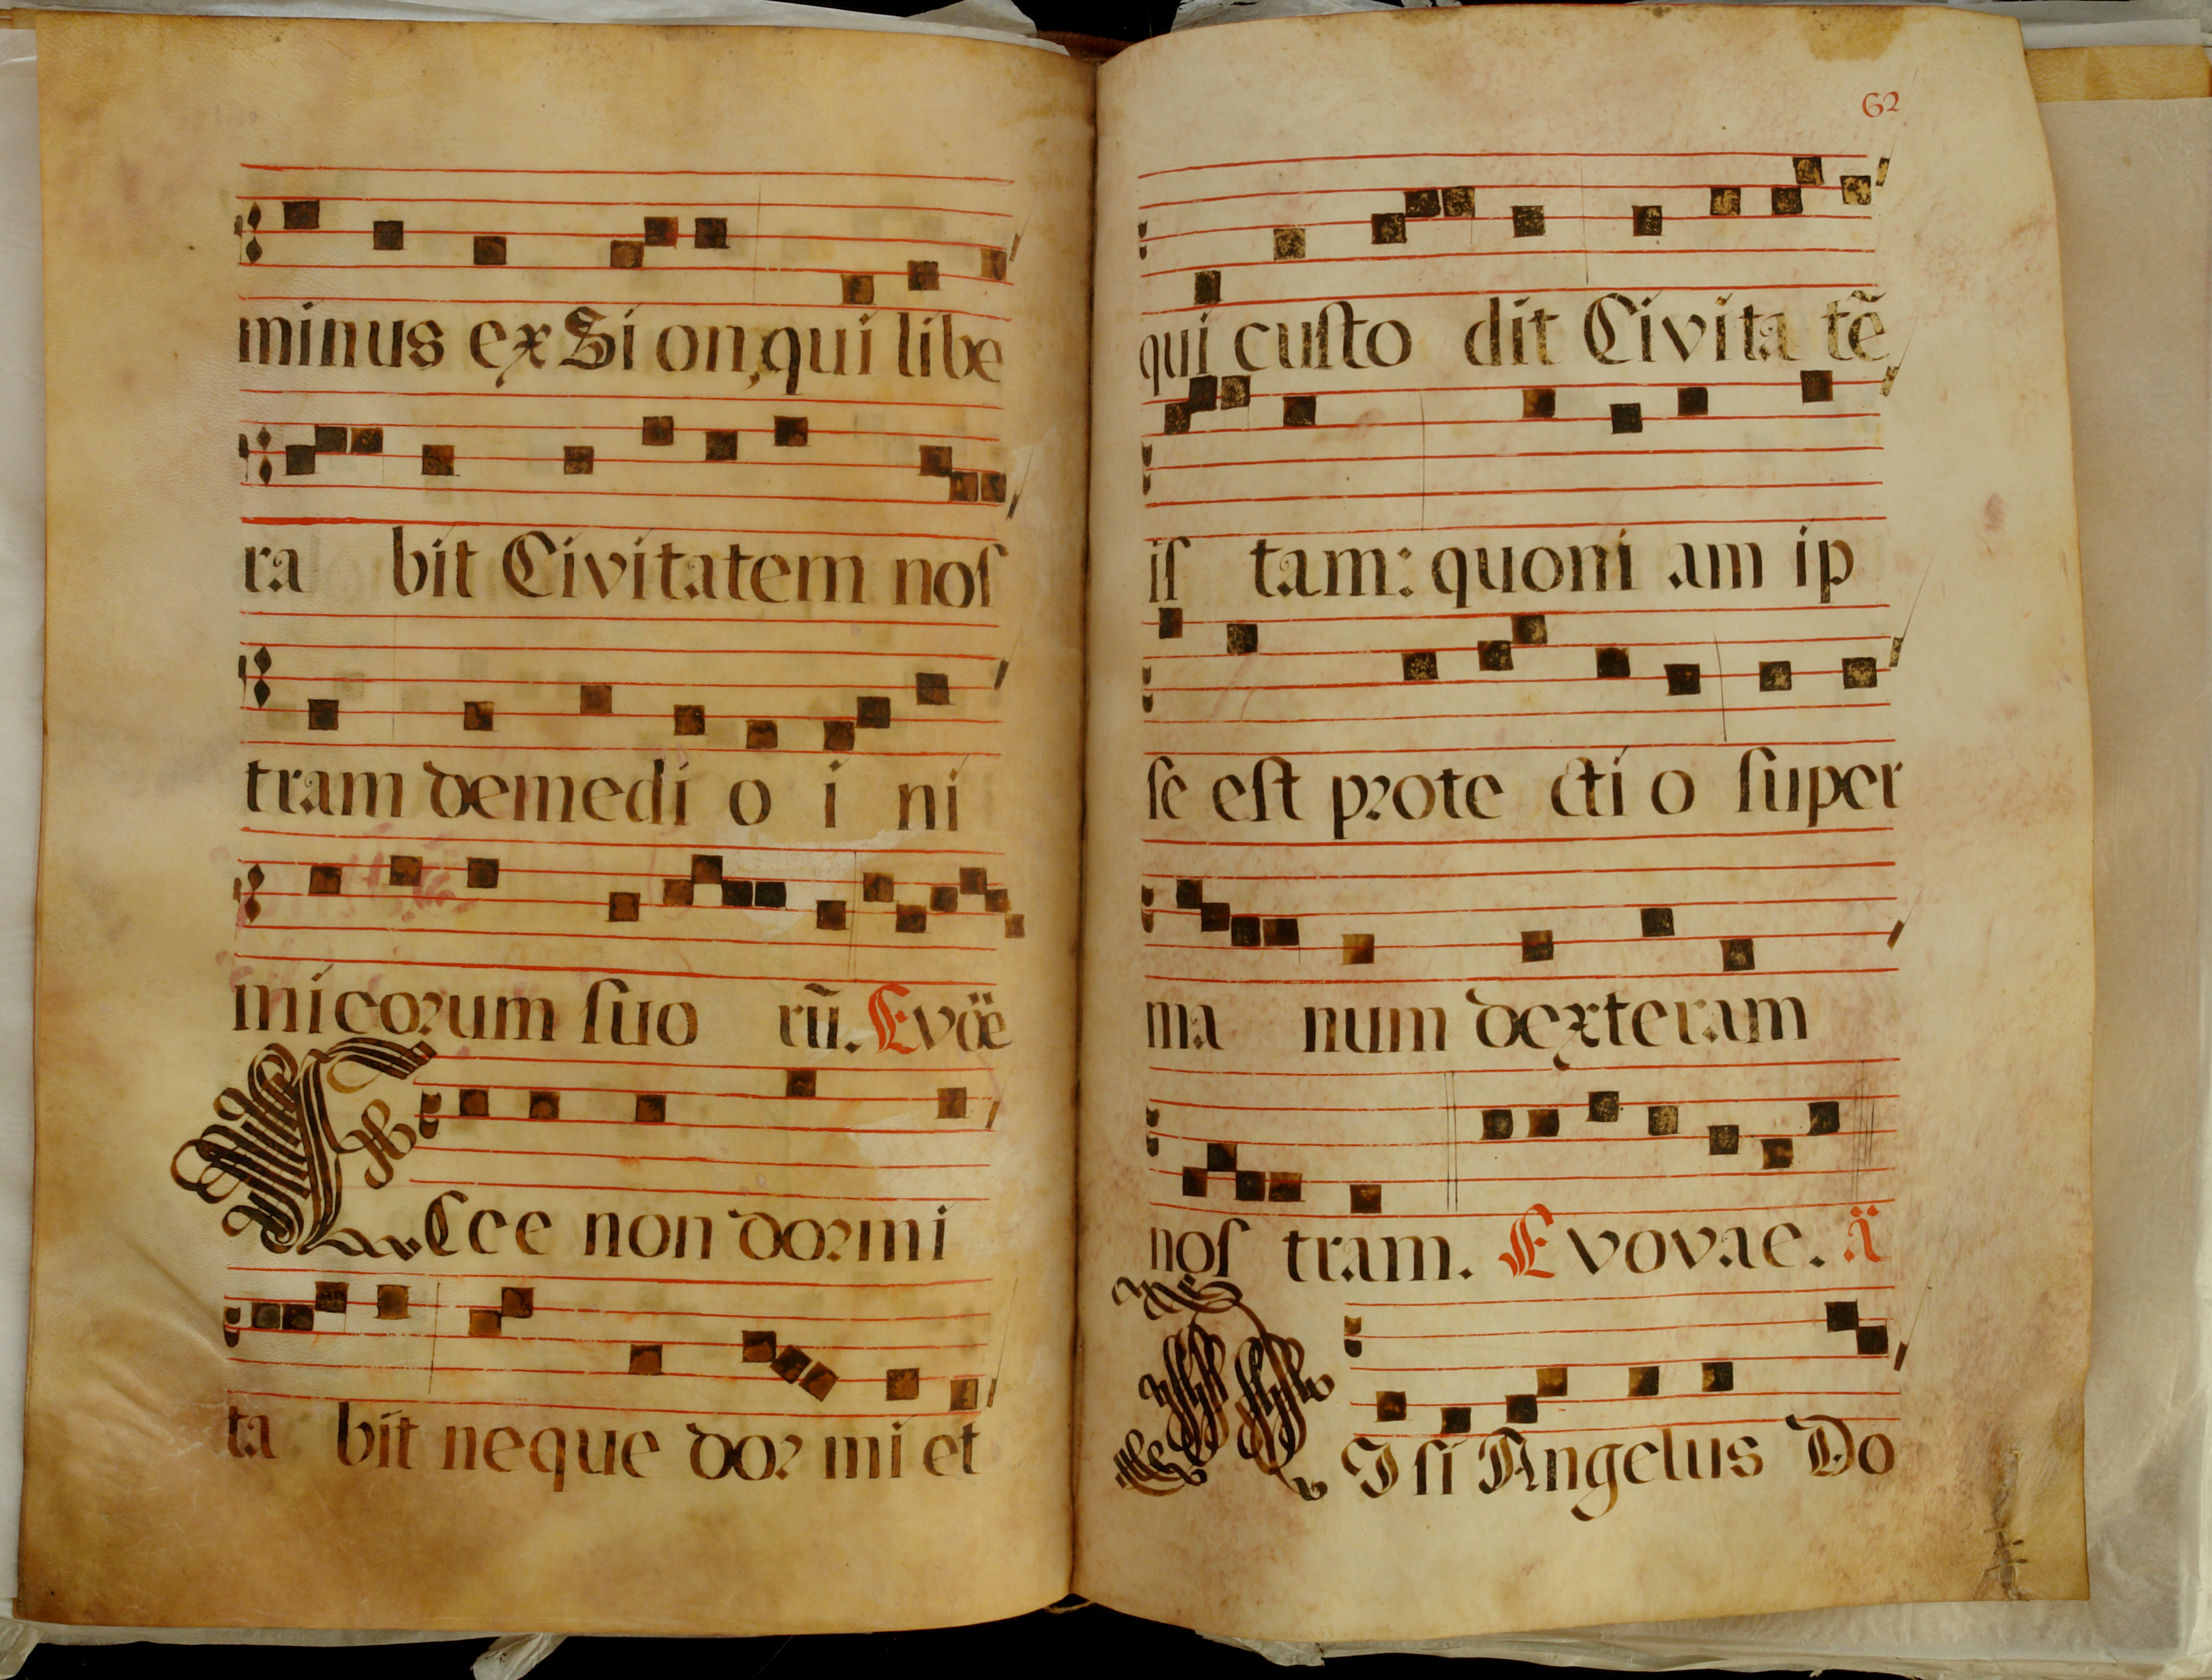 minus ex Si on, qui libe
ra bit Civitatem noſ
tram demedi o i ni
micorum ſuo rũ. Evöe
Ecce non dormi
ta bit neque dor mi et
62
qui cuſto dit Civita tẽ
iſ tam: quoni am ip
ſe eſt prote cti o ſuper
ma num dexteram
noſ tram. E vovae. ä
NIſi Angelus Do